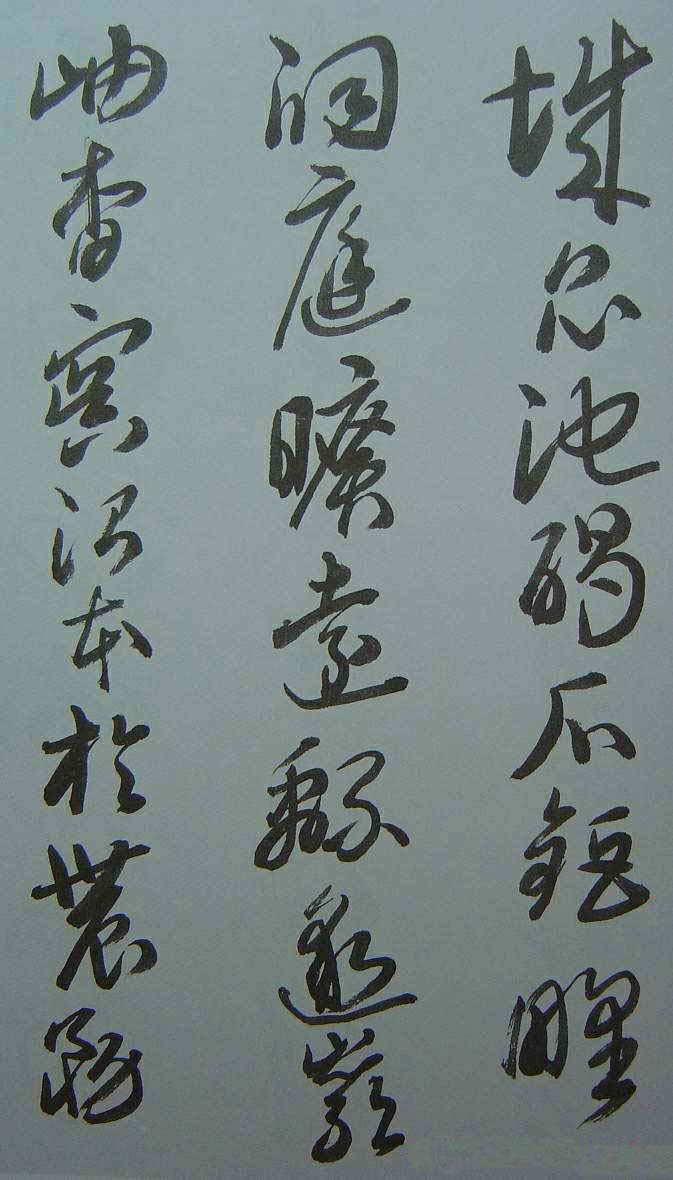 城昆池碣石鉅野
洞庭曠遠緜邈巖
岫杳冥治本於農務